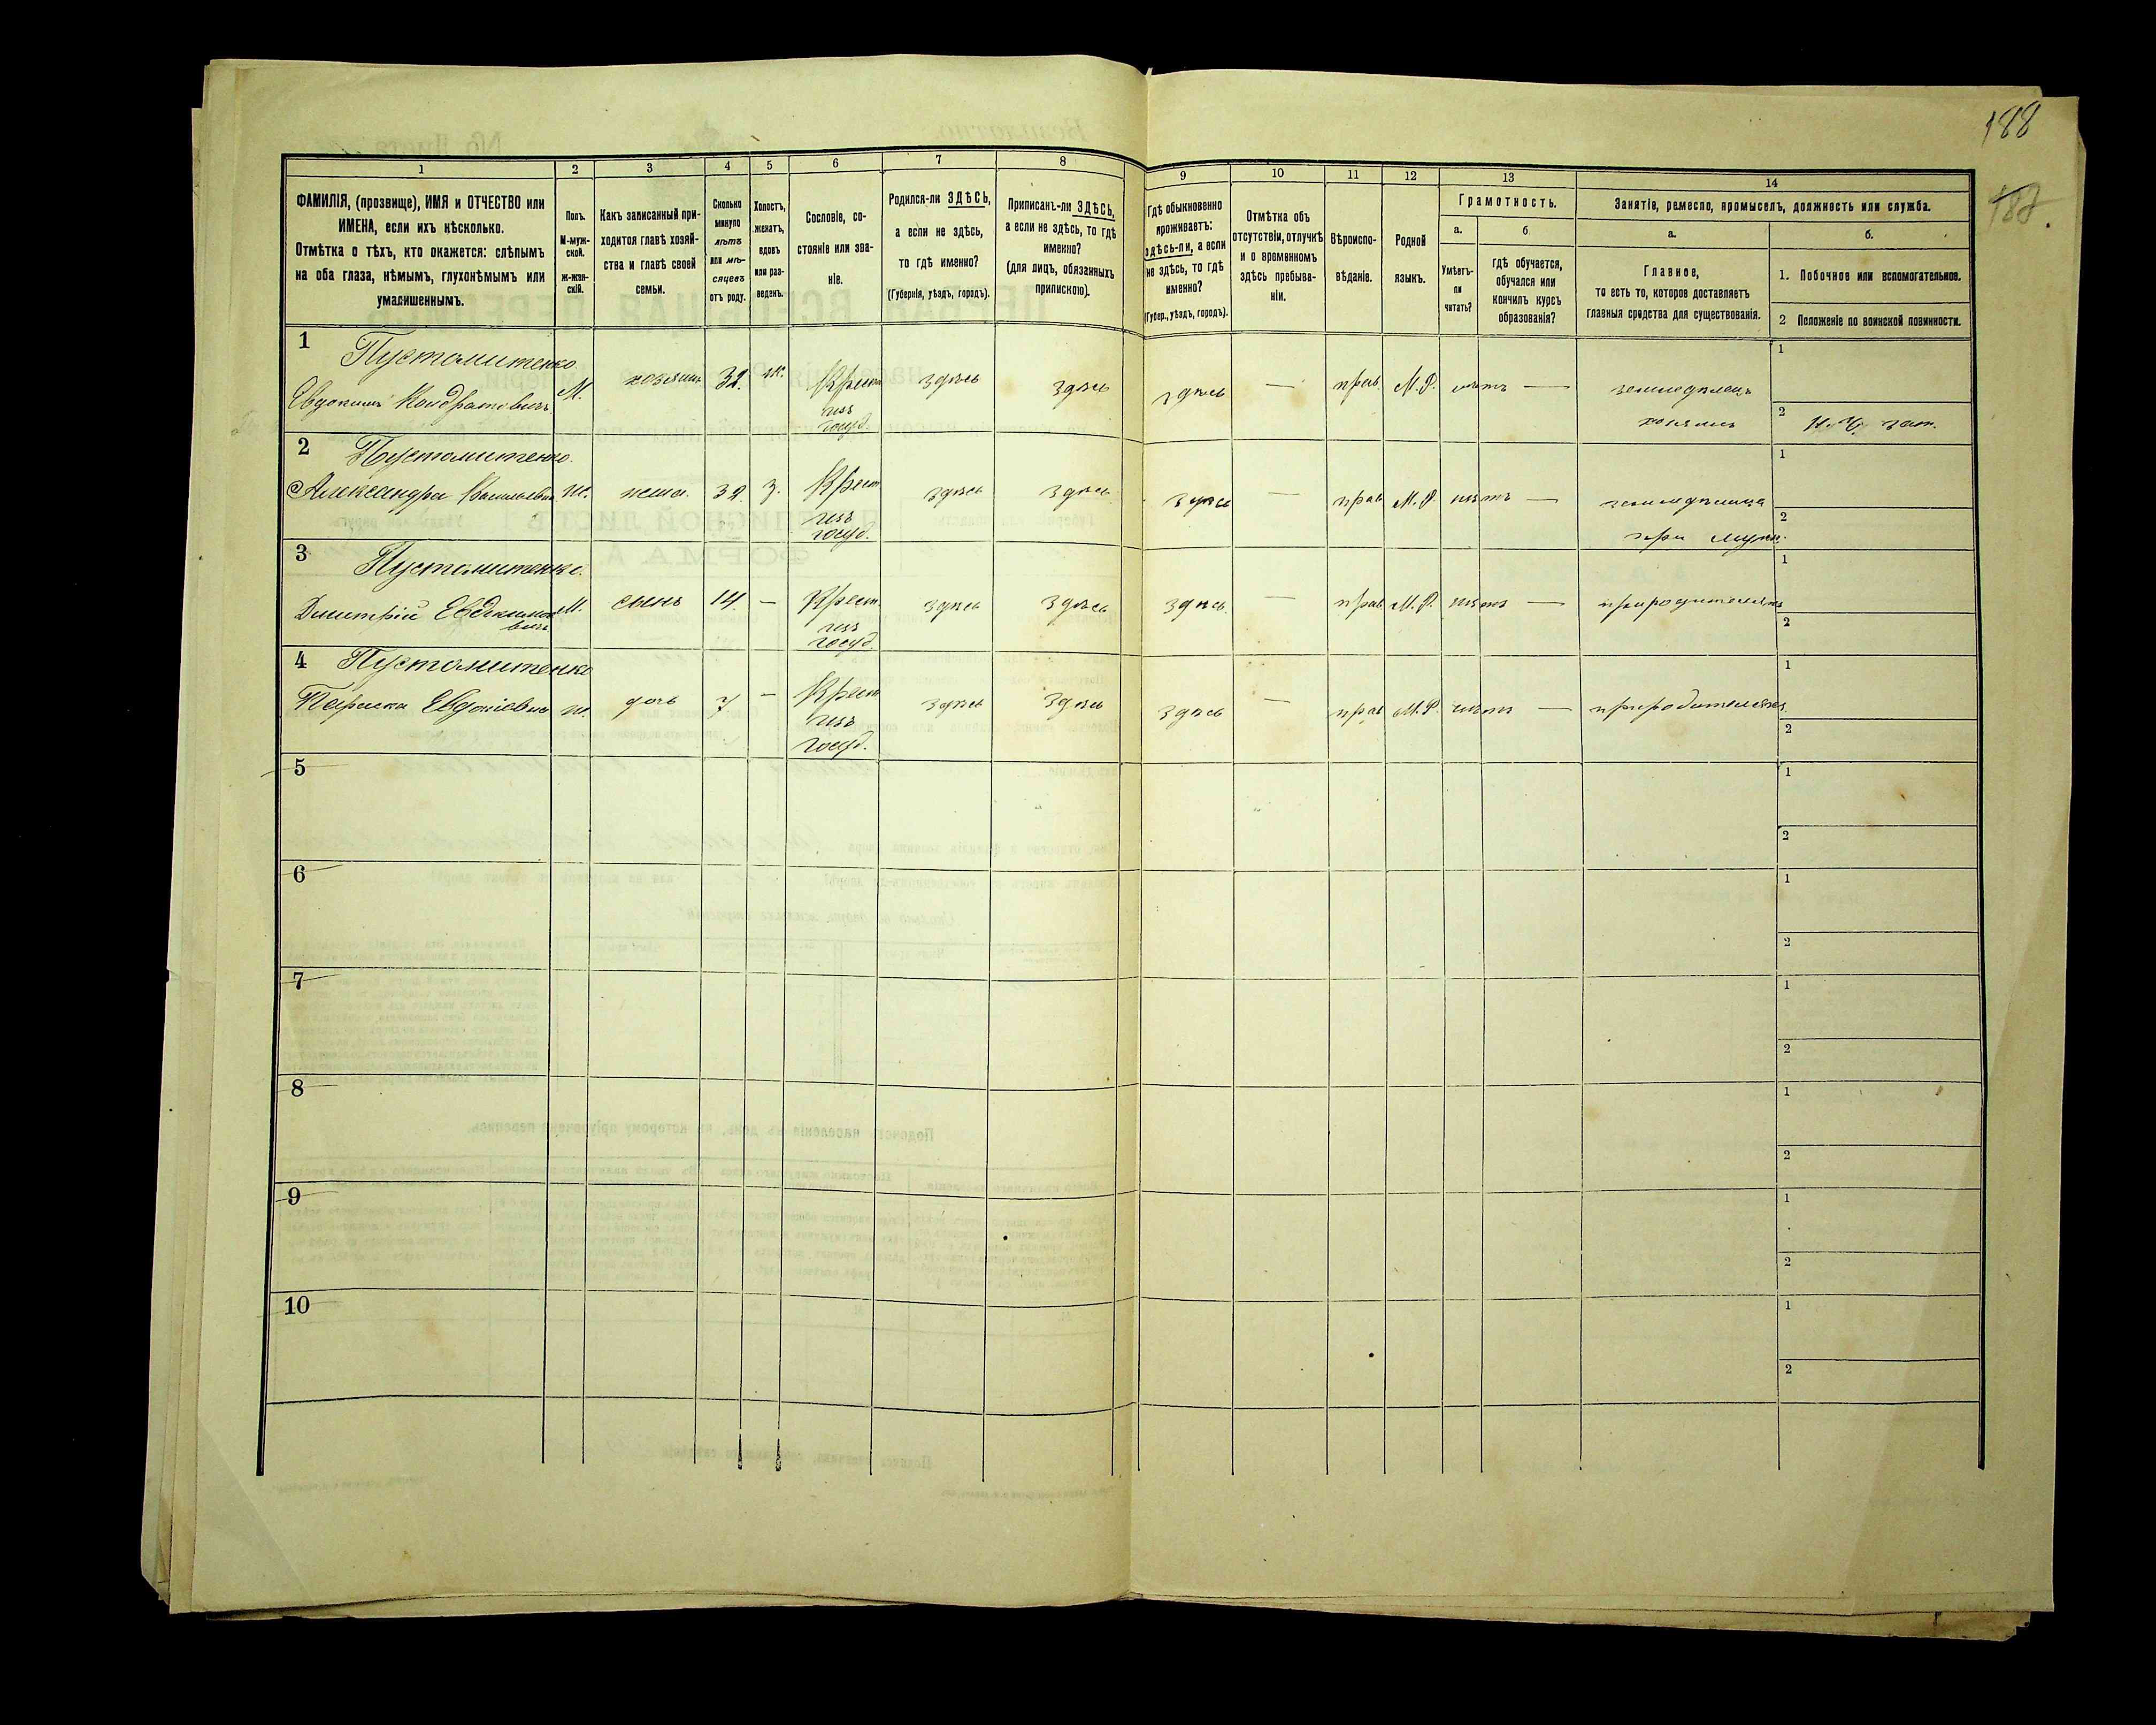 188
187.
1
2
3
4
5
6
7
8
9
10
11
12
13
14
ФАМИЛІЯ, (прозвище), ИМЯ и ОТЧЕСТВО или
ИМЕНА, если ихъ нѣсколько.
Отмѣтка о тѣхъ, кто окажется: слѣпымъ
на оба глаза, нѣмымъ, глухонѣмымъ или
умалишеннымъ.
Полъ.
М-муж-
ской.
Ж-жен-
скій.
Какъ записанный при-
ходится главѣ хозяй-
ства и главѣ своей
семьи.
Сколько
минуло
лѣтъ
или мѣ-
сяцевъ
отъ роду.
Холостъ,
женатъ,
вдовъ
или раз-
веденъ.
Сословіе, со-
стояніе или зва-
ніе.
Родился-ли ЗДѢСЬ,
а если не здѣсь,
то гдѣ именно?
(Губернія, уѣздъ, городъ).
Приписанъ-ли ЗДѢСЬ,
а если не здѣсь, то гдѣ
именно?
(для лицъ, обязанныхъ
припискою).
Гдѣ обыкновенно
проживаетъ:
здѣсь-ли, а если
не здѣсь, то гдѣ
именно?
(Губер., уѣздъ, городъ).
Отмѣтка объ
отсутствіи, отлучкѣ
и о временномъ
здѣсь пребыва-
ніи.
Вѣроиспо-
вѣданіе.
Родной
языкъ.
Грамотность.
а.
Умѣетъ-
ли
читать?
б
гдѣ обучается,
обучался или
кончилъ курсъ
образованія?
Занятіе, ремесло, промыселъ, должность или служба.
а.
Главное,
то есть то, которое доставляетъ
главныя средства для существованія.
б.
1. Побочное или вспомогательное.
2 Положеніе по воинской повинности.
1 Пустомитенко
Евдокимъ Кондратовичъ М. хозяинъ 32. ж. Крест. здѣсь здѣсь здѣсь — прав. М.Р. нѣтъ — земледѣлецъ 1
изъ
госуд.
хозяинъ 2
2 Пустомитенко.
Александра Васильевна ж. жена. 32. з. Крест здѣсь здѣсь здѣсь — прав М.Р нѣтъ — земледѣлица 1
изъ
госуд.
при мужѣ. 2
3 Пустомитенко.
Димитрій Евдокимо М. сынъ 14. — Крест. здѣсь здѣсь здѣсь. — прав М.Р. нѣтъ — при родителяхъ 1
вичъ изъ 2
госуд.
4 Пустомитенко
Параска Евдокіевна ж. дочь 7 — Крест здѣсь здѣсь здѣсь — прав М.Р. нѣтъ — при родителяхъ 1
изъ 2
госуд.
5 1
2
6 1
2
7 1
2
8 1
2
9 1
2
10 1
2